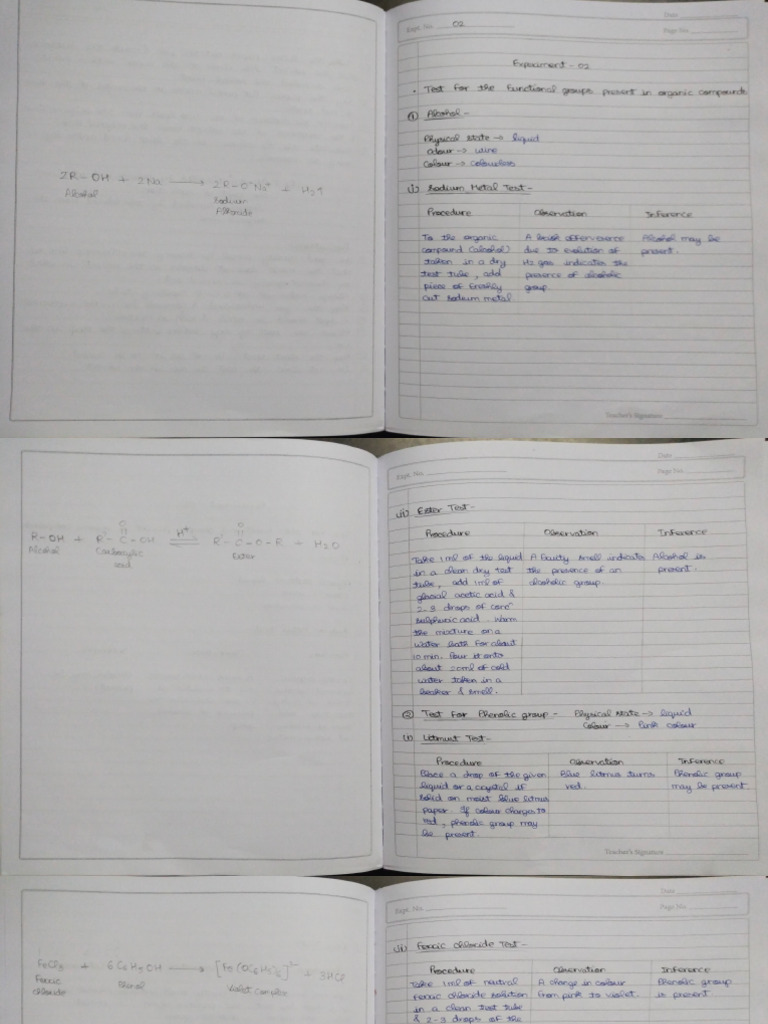 2R-OH + 2Na ⟶ 2R-O⁻Na⁺ + H₂↑
Alcohol Sodium
Alkoxide
Date
Expt. No. 02 Page No.
Experiment - 02
• Test for the functional groups present in organic compounds
① Alcohol -
Physical state → liquid
odour → wine
Colour → colourless
(i) Sodium Metal Test -
Procedure Observation Inference
To the organic A brisk effervescence Alcohol may be
compound (alcohol) due to evolution of present.
taken in a dry H₂ gas indicates the
test tube, add presence of alcoholic
piece of freshly group.
cut sodium metal.
Teacher's Signature
R-OH + R'-C-OH ⇌ R'-C-O-R + H₂O
O H⁺ O
Alcohol Carboxylic Ester
acid
Date
Expt. No. Page No.
(ii) Ester Test -
Procedure Observation Inference
Take 1ml of the liquid A fruity smell indicates Alcohol is
in a clean dry test the presence of an present.
tube, add 1ml of alcoholic group.
glacial acetic acid &
2-3 drops of conc
sulphuric acid. Warm
the mixture on a
water bath for about
10 min. Pour it onto
about 20ml of cold
water taken in a
beaker & smell.
② Test for Phenolic group - Physical state → liquid
Colour → Pink colour
(i) Litmust Test -
Procedure Observation Inference
Place a drop of the given Blue litmus turns Phenolic group
liquid or a crystal if red. may be present.
solid on moist blue litmus
paper. If colour changes to
red, phenolic group may
be present.
Teacher's Signature
FeCl₃ + 6C₆H₅OH ⟶ [Fe(OC₆H₅)₆]³⁻ + 3HCl
Ferric Phenol Violet complex
chloride
Date
Expt. No. Page No.
(ii) Ferric chloride Test -
Procedure Observation Inference
Take 1ml of neutral A change in colour Phenolic group
ferric chloride solution from pink to violet. is present
in a clean test tube
& 2-3 drops of the